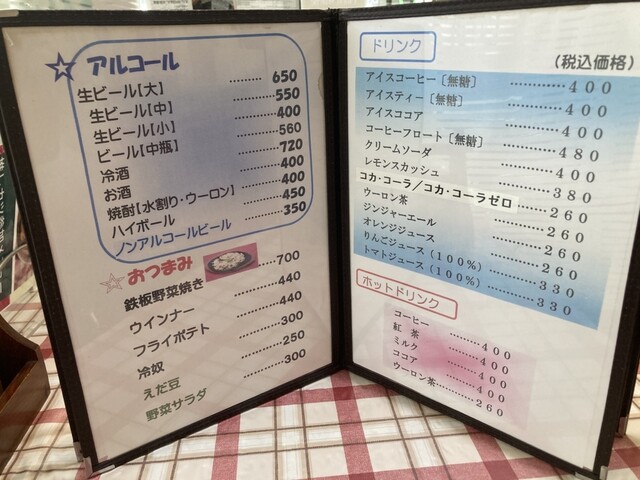 ☆ アルコール
生ビール[大] ……… 650
生ビール[中] ……… 550
生ビール[小] ……… 400
ビール[中瓶] ……… 560
冷酒 ……… 720
お酒 ……… 400
焼酎【水割り・ウーロン】 ……… 400
ハイボール ……… 450
ノンアルコールビール ……… 350
☆おつまみ
鉄板野菜焼き ……… 700
ウインナー ……… 440
フライポテト ……… 440
冷奴 ……… 300
えだ豆 ……… 250
野菜サラダ ……… 300
ドリンク
(税込価格)
アイスコーヒー〔無糖〕 ……… 400
アイスティー〔無糖〕 ……… 400
アイスココア ……… 400
コーヒーフロート〔無糖〕 ……… 480
クリームソーダ ……… 400
レモンスカッシュ ……… 380
コカ・コーラ/コカ・コーラゼロ ……… 260
ウーロン茶 ……… 260
ジンジャーエール ……… 260
オレンジジュース ……… 260
りんごジュース(100%) ……… 330
トマトジュース(100%) ……… 330
ホットドリンク
コーヒー ……… 400
紅茶 ……… 400
ミルク ……… 400
ココア ……… 400
ウーロン茶 ……… 260